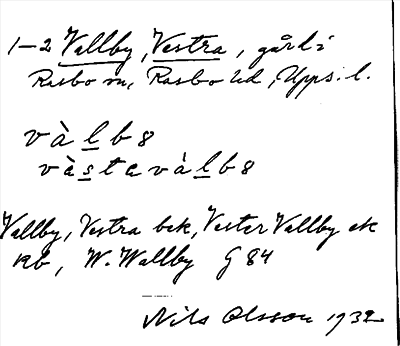 1-2 Vallby, Vestra, gård i
Rasbo sn, Rasbo hd, Upps. l.
và l b 8
và s t e v à l b 8
Vallby, Vestra bek, Vester Vallby ek
Kb, W. Wallby G 84
Nils Olsson 1932